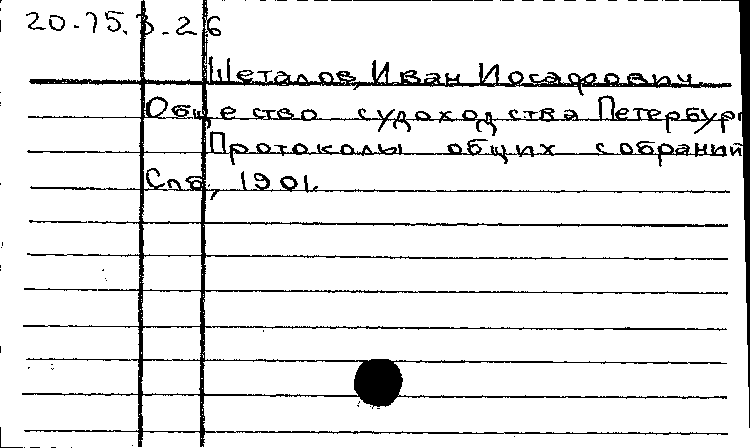 20.75.3.26
Шеталов, Иван Иосафович
Общество судоходства Петербург
Протоколы общих собраний
Спб, 1901.